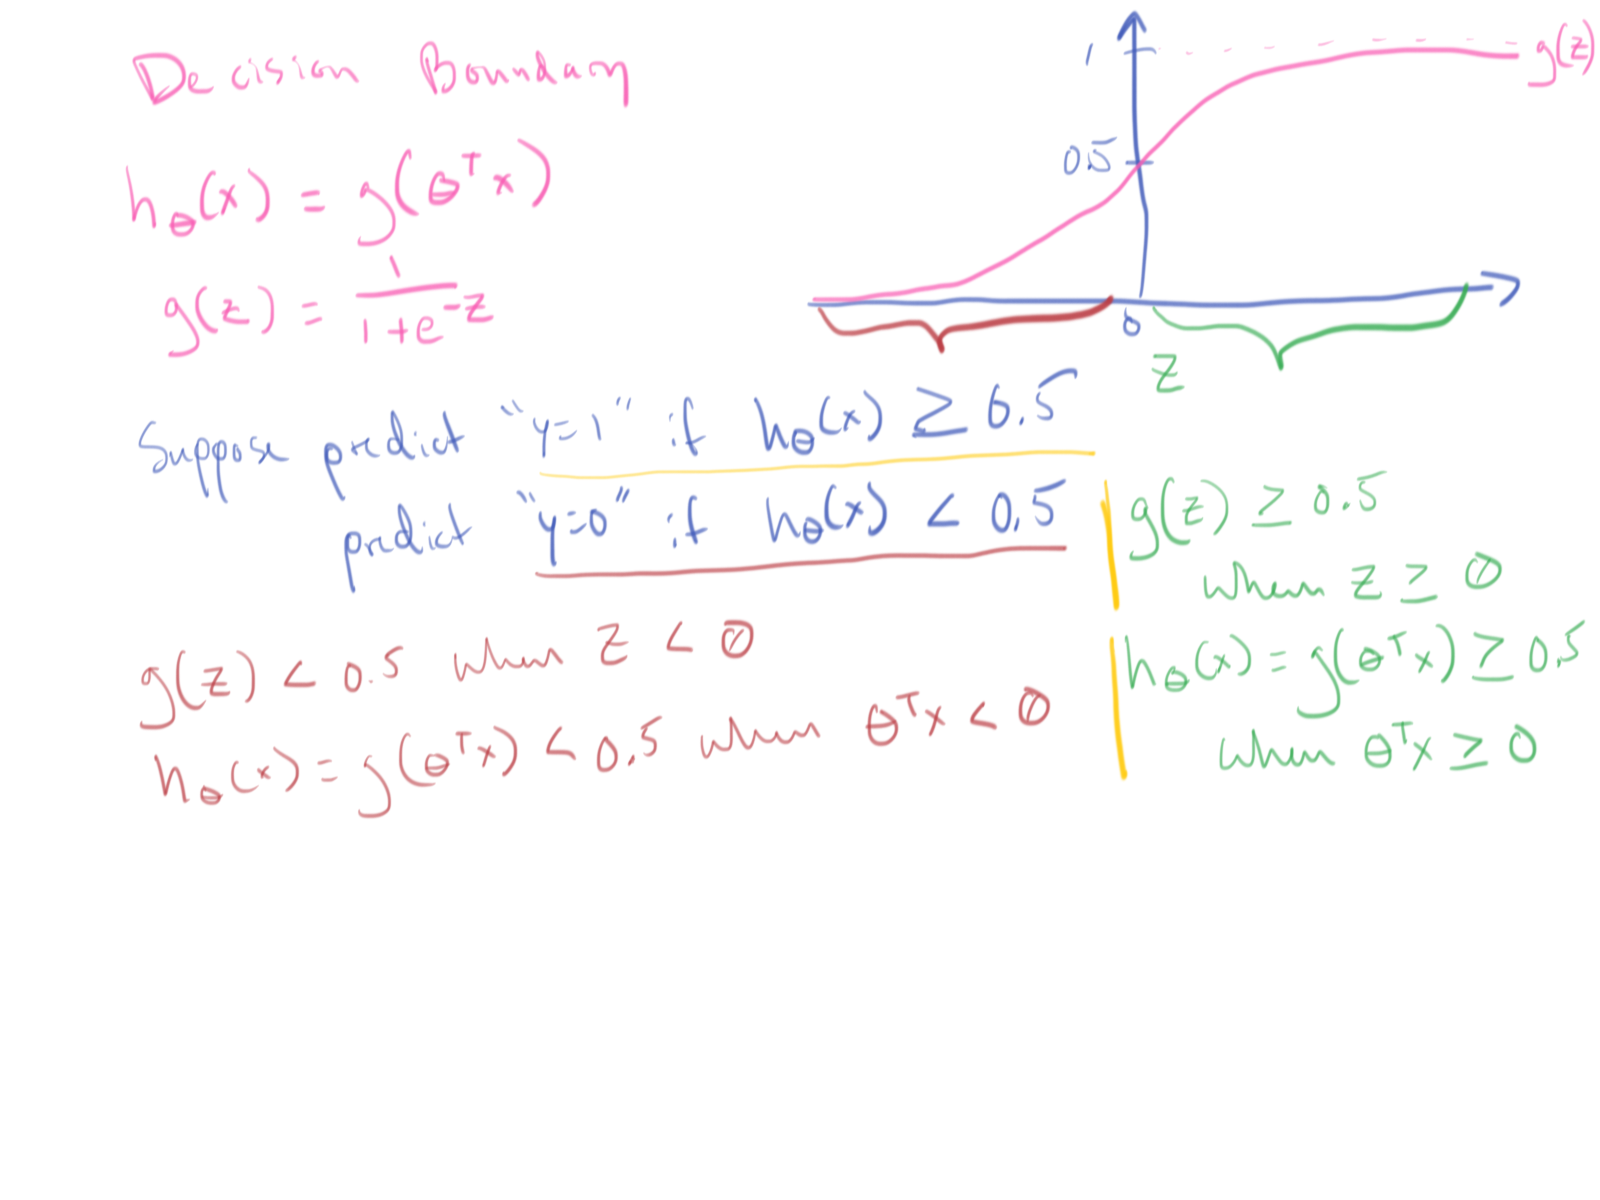 Decision Boundary
h_θ(x) = g(θ^T x)
g(z) = 1 / (1 + e^-z)
1
g(z)
0.5
0
z
Suppose predict "y=1" if h_θ(x) ≥ 0.5
predict "y=0" if h_θ(x) < 0.5
g(z) ≥ 0.5
when z ≥ 0
h_θ(x) = g(θ^T x) ≥ 0.5
when θ^T x ≥ 0
g(z) < 0.5 when z < 0
h_θ(x) = g(θ^T x) < 0.5 when θ^T x < 0